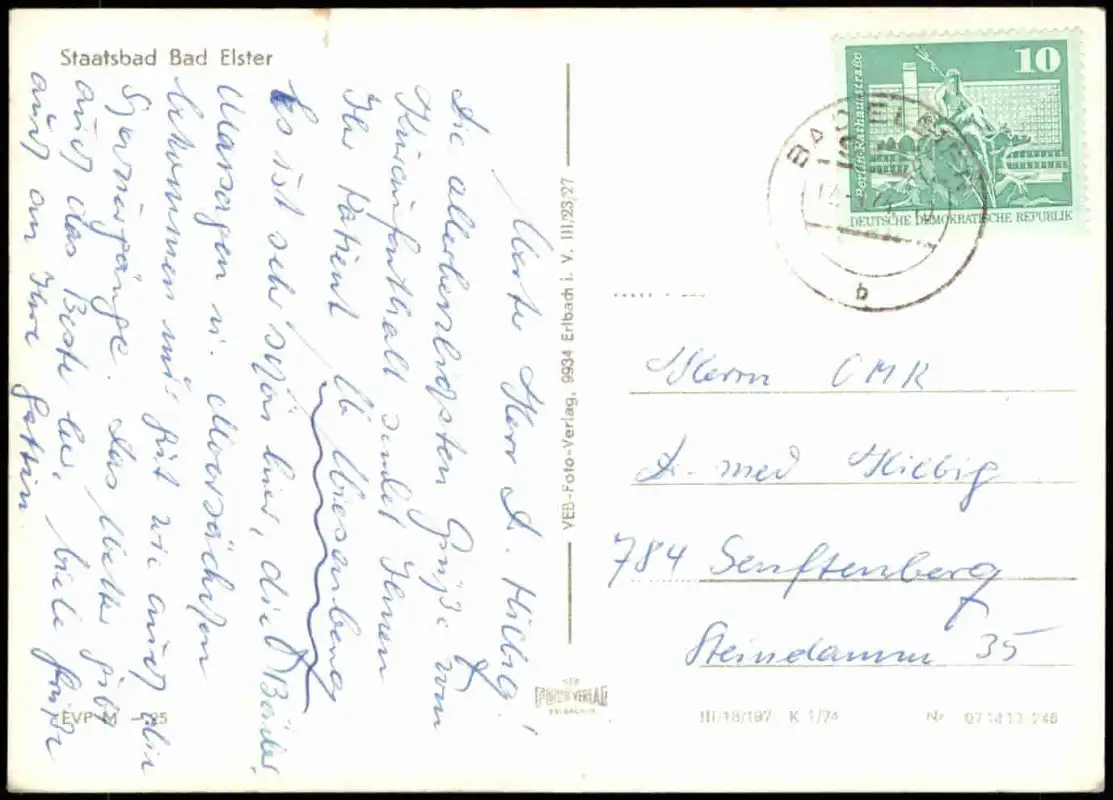 Staatsbad Bad Elster
Werter Herr Dr. Hilbig!
Die allerherzlichsten Grüße vom
Kuraufenthalt sendet Ihnen
Ihr Patient W. Wiesenberg
Es ist sehr schön hier, die Bäder,
Massagen u. Moorsäckchen
bekommen mir gut wie auch die
Spaziergänge. Das Wetter gibt
auch das Beste her. Viele Grüße
auch an Ihre Gattin.
EVP M –,25
VEB-Foto-Verlag, 9934 Erlbach i. V. III/23/27
FOTO-VERLAG
ERLBACH
10
Berlin-Rathausstraße
DEUTSCHE DEMOKRATISCHE REPUBLIK
BAD ELSTER
b
Herrn OMR
Dr. med Hilbig
784 Senftenberg
Steindamm 35
III/18/197 K 1/74 Nr. 07 14 13 248